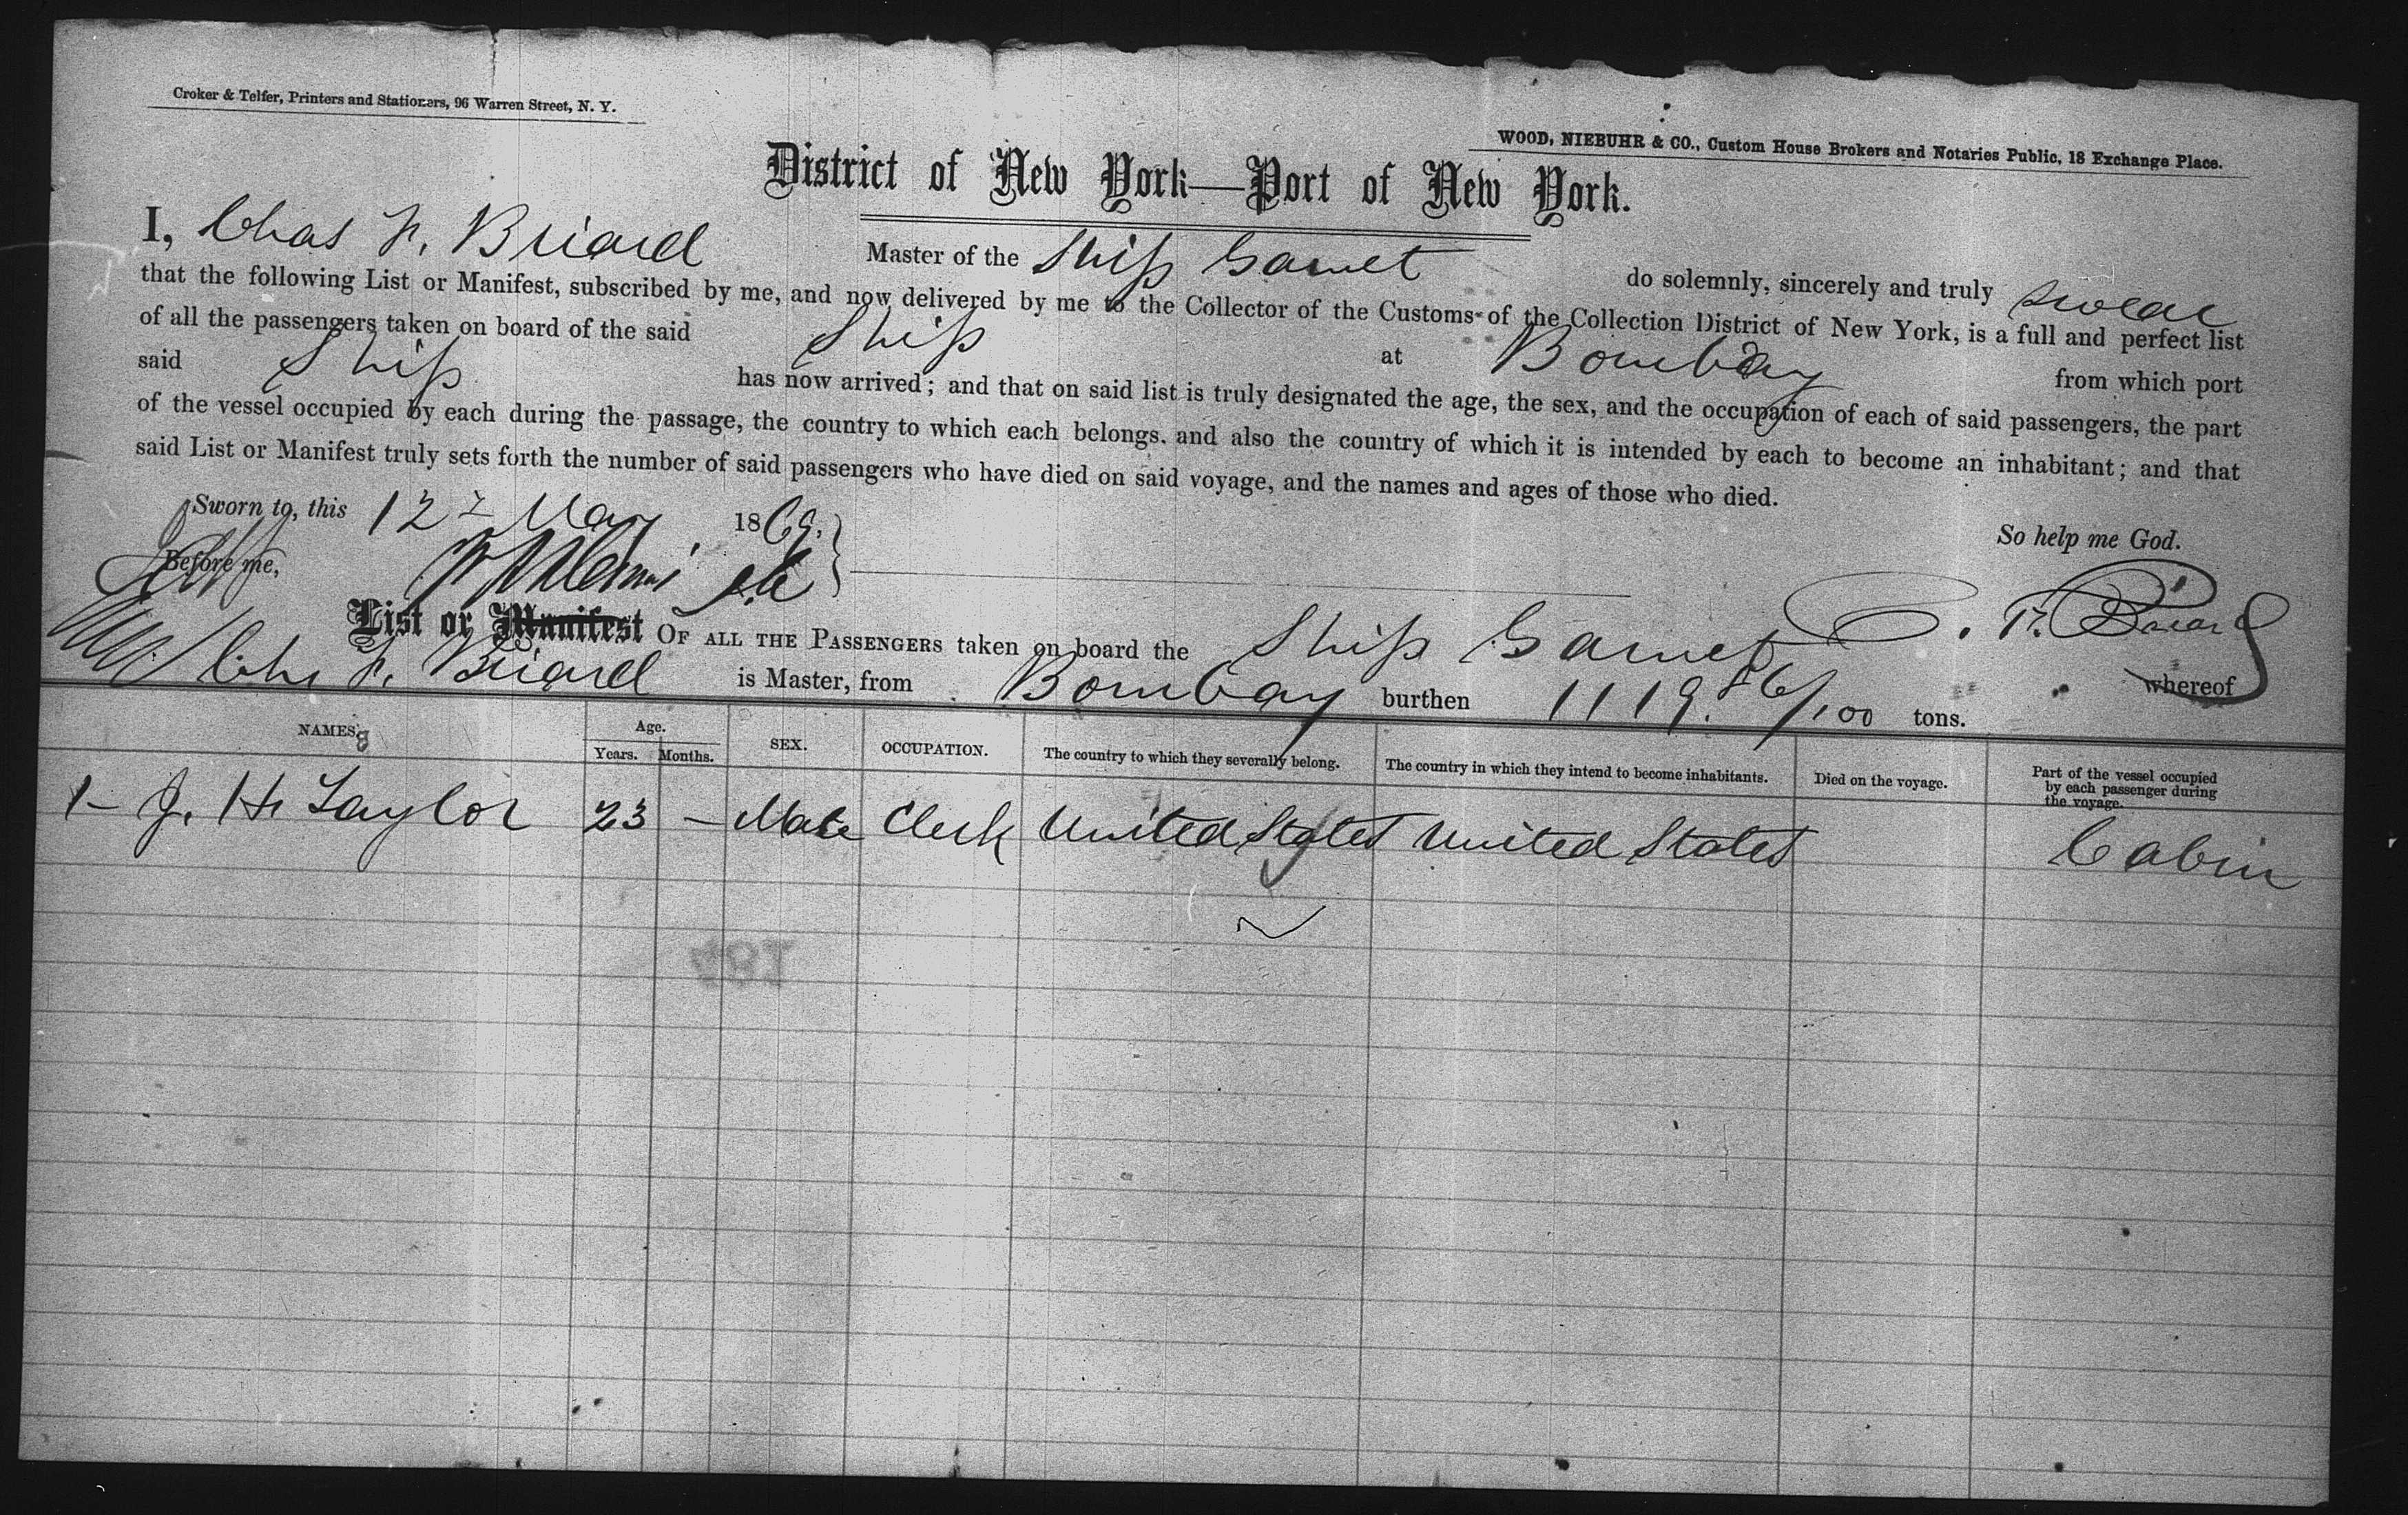 Croker & Telfer, Printers and Stationers, 96 Warren Street, N. Y.
WOOD, NIEBUHR & CO., Custom House Brokers and Notaries Public, 18 Exchange Place.
District of New York—Port of New York.
I, Chas F. Briard Master of the Ship Garnet do solemnly, sincerely and truly swear
that the following List or Manifest, subscribed by me, and now delivered by me to the Collector of the Customs of the Collection District of New York, is a full and perfect list
of all the passengers taken on board of the said Ship at Bombay from which port
said Ship has now arrived; and that on said list is truly designated the age, the sex, and the occupation of each of said passengers, the part
of the vessel occupied by each during the passage, the country to which each belongs, and also the country of which it is intended by each to become an inhabitant; and that
said List or Manifest truly sets forth the number of said passengers who have died on said voyage, and the names and ages of those who died.
Sworn to, this 12 May 1869. So help me God.
Before me,
C. F. Briard
List or Manifest OF ALL THE PASSENGERS taken on board the Ship Garnet whereof
Chs F. Briard is Master, from Bombay burthen 1119.56/100 tons.
NAMES. Age. Years. Months. SEX. OCCUPATION. The country to which they severally belong. The country in which they intend to become inhabitants. Died on the voyage. Part of the vessel occupied by each passenger during the voyage.
1- J. H. Taylor 23 — Male Clerk United States United States Cabin